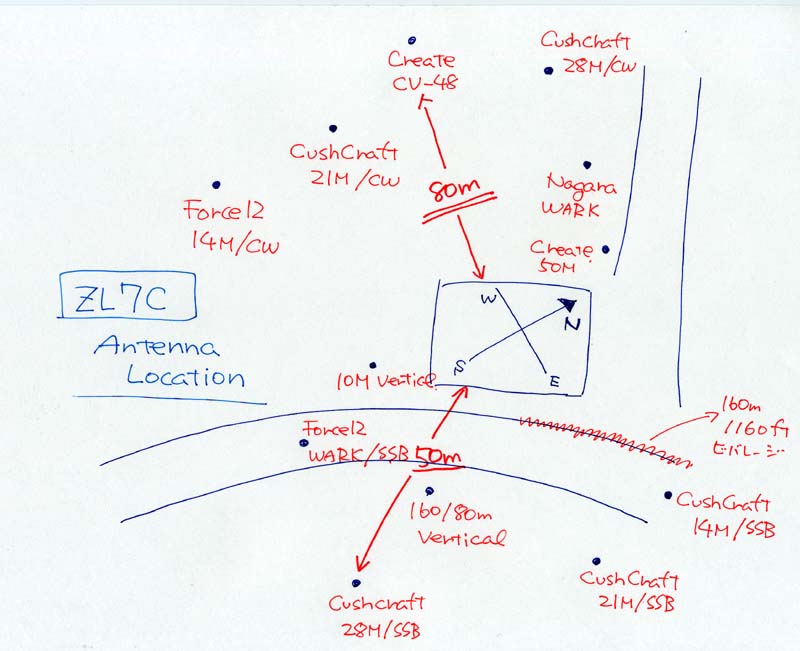 Create
CV-48
CushCraft
28M/CW
CushCraft
21M/CW
80m
Nagara
WARK
Force12
14M/CW
Create
50M
ZL7C
Antenna
Location
W
N
S
E
10M Vertical
160m
1160ft
ビバレージ
Force12
WARK/SSB
50m
160/80m
Vertical
CushCraft
14M/SSB
CushCraft
21M/SSB
Cushcraft
28M/SSB